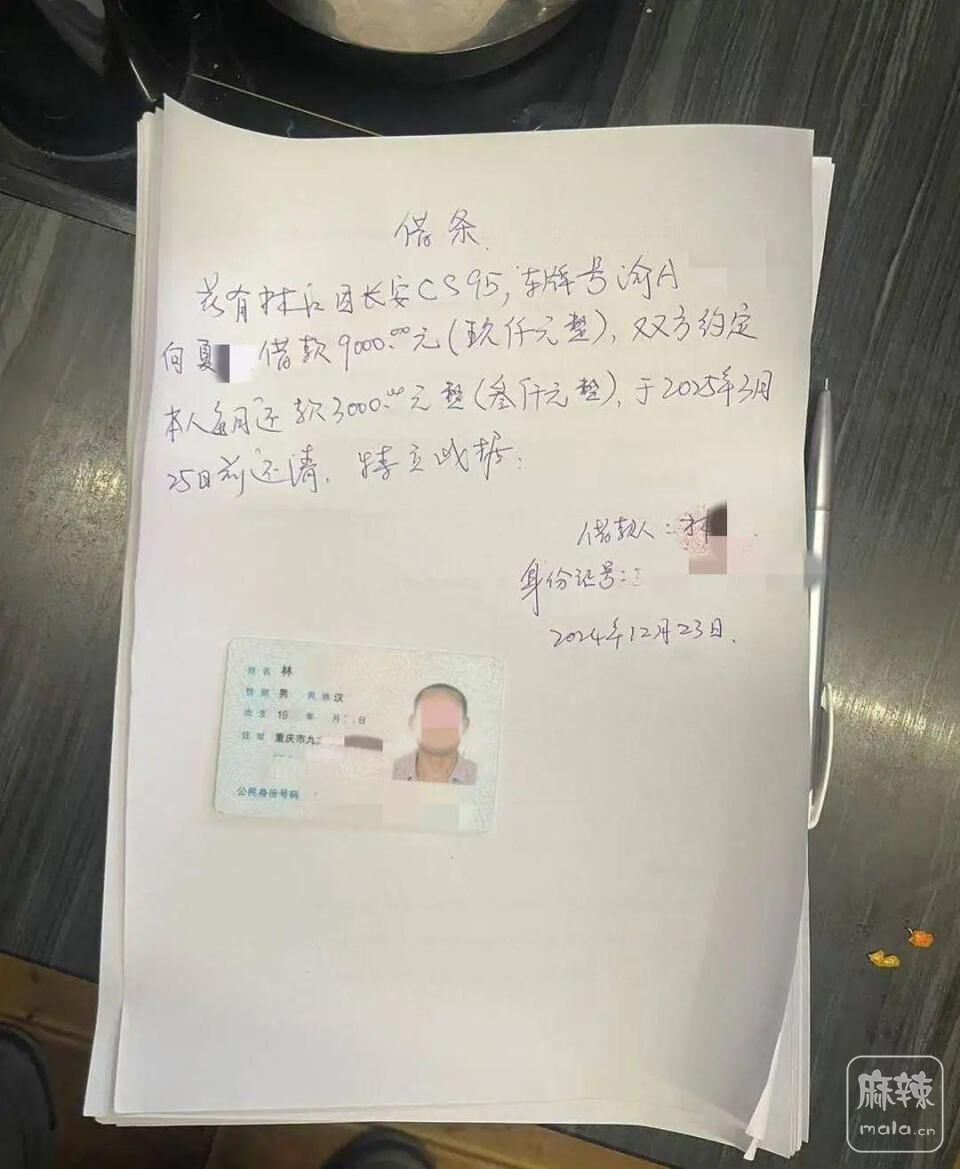 借条.
兹有林 因长安CS95, 车牌号渝A
向夏 借款9000.00元(玖仟元整), 双方约定
本人每月还款3000.00元整(叁仟元整), 于2025年3月
25日前还清, 特立此据.
借款人: 林
身份证号:
2024年12月23日.
姓名 林
性别 男 民族 汉
出生 19 年 月 日
住址 重庆市九
公民身份号码
麻辣
mala.cn